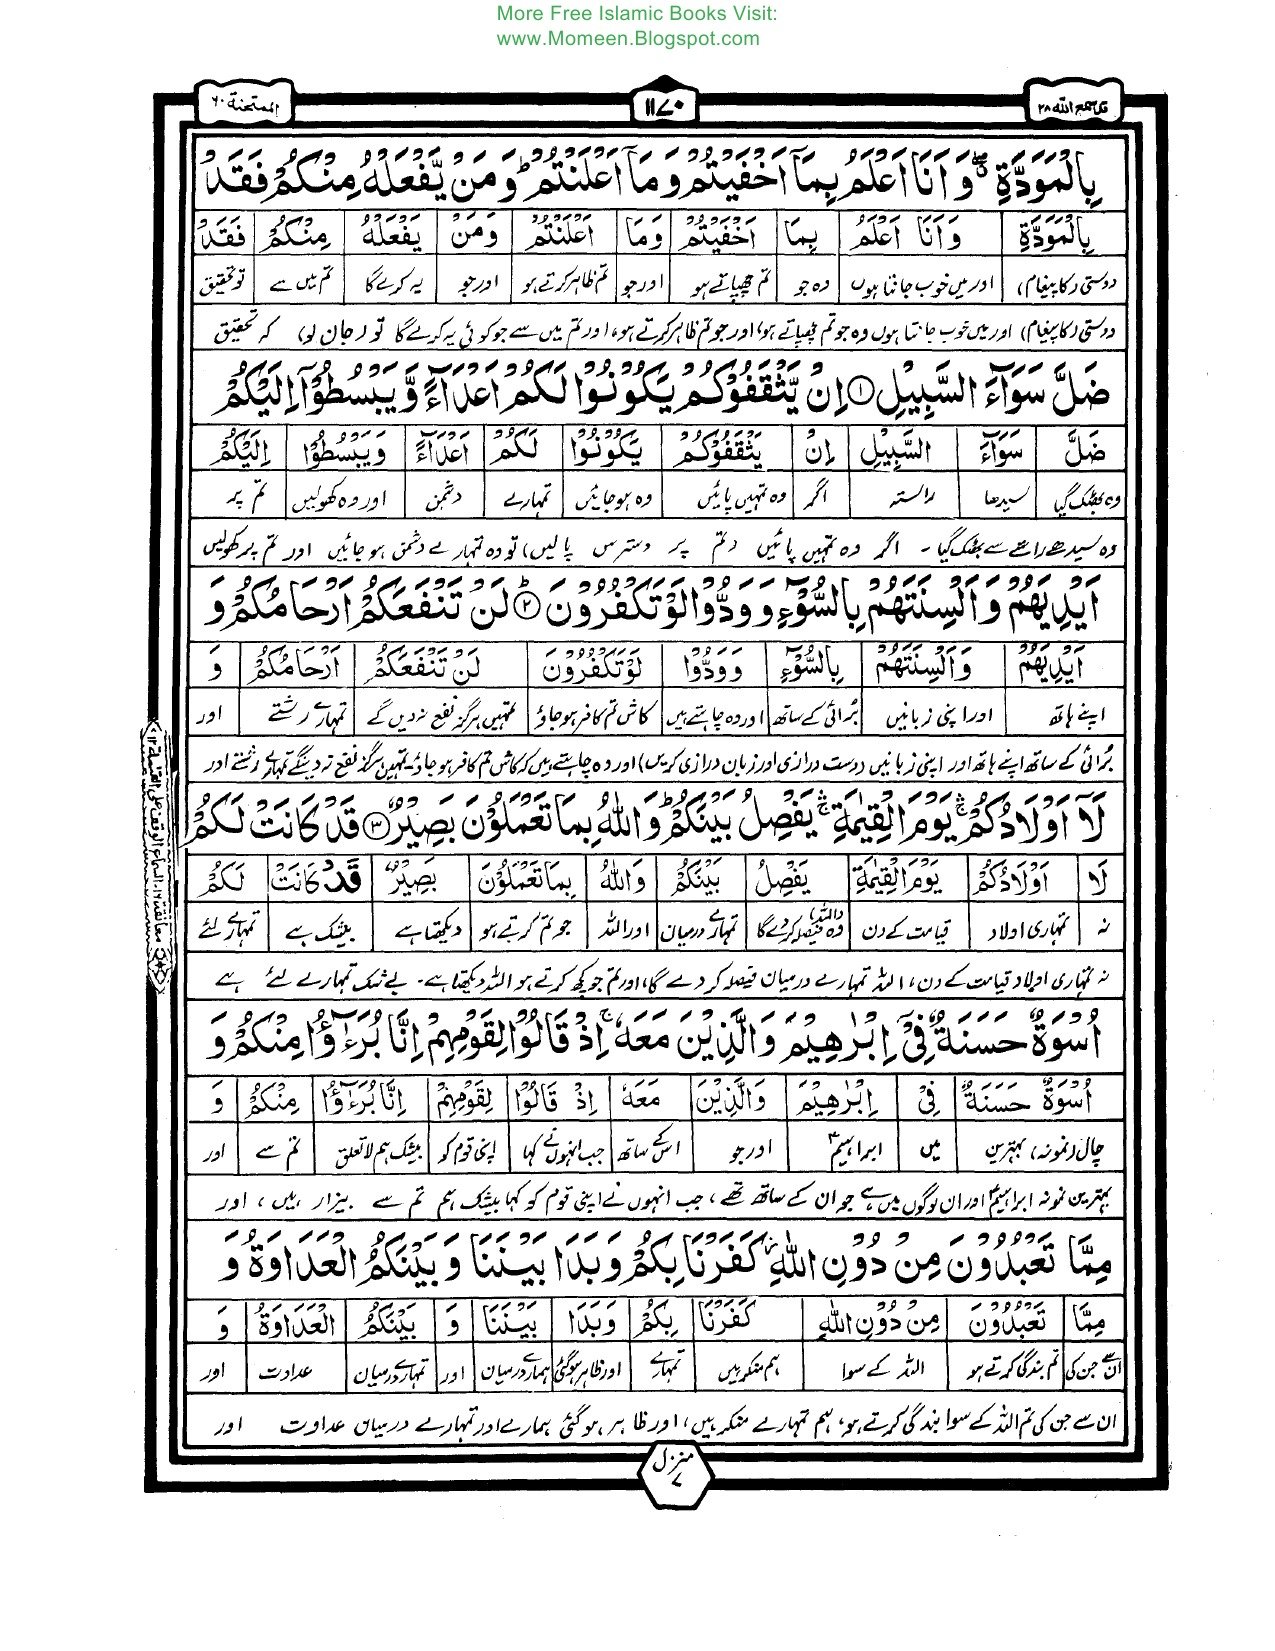 More Free Islamic Books Visit:
www.Momeen.Blogspot.com
قد سمع الله ٢٨
١١٧٠
الممتحنة ٦٠
بِالْمَوَدَّةِ ۖ وَ اَنَا اَعْلَمُ بِمَاۤ اَخْفَیْتُمْ وَ مَاۤ اَعْلَنْتُمْ ؕ وَ مَنْ یَّفْعَلْهُ مِنْكُمْ فَقَدْ
بِالْمَوَدَّةِ وَاَنَا اَعْلَمُ بِمَا اَخْفَیْتُمْ وَمَا اَعْلَنْتُمْ وَمَنْ یَفْعَلْهُ مِنْكُمْ فَقَدْ
دوستی (کا پیغام) اور میں خوب جانتا ہوں وہ جو تم چھپاتے ہو اور جو تم ظاہر کرتے ہو اور جو یہ کرے گا تم میں سے تو تحقیق
دوستی (کا پیغام) اور میں خوب جانتا ہوں وہ جو تم چھپاتے ہو، اور جو تم ظاہر کرتے ہو، اور تم میں سے جو کوئی یہ کرے گا تو (جان لو) کہ تحقیق
ضَلَّ سَوَآءَ السَّبِیْلِ ۝۱ اِنْ یَّثْقَفُوْكُمْ یَكُوْنُوْا لَكُمْ اَعْدَآءً وَّ یَبْسُطُوْۤا اِلَیْكُمْ
ضَلَّ سَوَآءَ السَّبِیْلِ اِنْ یَثْقَفُوْكُمْ یَكُوْنُوْا لَكُمْ اَعْدَآءً وَیَبْسُطُوْا اِلَیْكُمْ
وہ بھٹک گیا سیدھا راستہ اگر وہ تمہیں پائیں وہ ہو جائیں تمہارے دشمن اور وہ کھولیں تم پر
وہ سیدھے راستے سے بھٹک گیا۔ اگر وہ تمہیں پائیں (تم پر دسترس پا لیں) تو وہ تمہارے دشمن ہو جائیں اور تم پر کھولیں
اَیْدِیَهُمْ وَ اَلْسِنَتَهُمْ بِالسُّوْٓءِ وَ وَدُّوْا لَوْ تَكْفُرُوْنَ ؕ۝۲ لَنْ تَنْفَعَكُمْ اَرْحَامُكُمْ وَ
اَیْدِیَهُمْ وَاَلْسِنَتَهُمْ بِالسُّوْٓءِ وَوَدُّوْا لَوْ تَكْفُرُوْنَ لَنْ تَنْفَعَكُمْ اَرْحَامُكُمْ وَ
اپنے ہاتھ اور اپنی زبانیں برائی کے ساتھ اور وہ چاہتے ہیں کاش تم کافر ہو جاؤ تمہیں ہرگز نفع نہ دیں گے تمہارے رشتے اور
برائی کے ساتھ اپنے ہاتھ اور اپنی زبانیں (دست درازی اور زبان درازی کریں) اور وہ چاہتے ہیں کہ کاش تم کافر ہو جاؤ۔ تمہیں ہرگز نفع نہ دینگے تمہارے رشتے اور
لَاۤ اَوْلَادُكُمْ ۛۚ یَوْمَ الْقِیٰمَةِ ۛۚ یَفْصِلُ بَیْنَكُمْ ؕ وَ اللّٰهُ بِمَا تَعْمَلُوْنَ بَصِیْرٌ ۝۳ قَدْ كَانَتْ لَكُمْ
لَا اَوْلَادُكُمْ یَوْمَ الْقِیٰمَةِ یَفْصِلُ بَیْنَكُمْ وَاللّٰهُ بِمَا تَعْمَلُوْنَ بَصِیْرٌ قَدْ كَانَتْ لَكُمْ
نہ تمہاری اولاد قیامت کے دن وہ (اللہ) فیصلہ کر دے گا تمہارے درمیان اور اللہ جو تم کرتے ہو دیکھتا ہے بیشک ہے تمہارے لئے
نہ تمہاری اولاد قیامت کے دن، اللہ تمہارے درمیان فیصلہ کر دے گا، اور تم جو کچھ کرتے ہو اللہ دیکھتا ہے۔ بے شک تمہارے لئے ہے
اُسْوَةٌ حَسَنَةٌ فِیْۤ اِبْرٰهِیْمَ وَ الَّذِیْنَ مَعَهٗ ۚ اِذْ قَالُوْا لِقَوْمِهِمْ اِنَّا بُرَءٰٓؤُا مِنْكُمْ وَ
اُسْوَةٌ حَسَنَةٌ فِیْ اِبْرٰهِیْمَ وَالَّذِیْنَ مَعَهٗ اِذْ قَالُوْا لِقَوْمِهِمْ اِنَّا بُرَءٰٓؤُا مِنْكُمْ وَ
چال (نمونہ) بہترین میں ابراہیمؑ اور جو اس کے ساتھ جب انہوں نے کہا اپنی قوم کو بیشک ہم لاتعلق تم سے اور
بہترین نمونہ ابراہیمؑ اور ان لوگوں میں ہے جو ان کے ساتھ تھے، جب انہوں نے اپنی قوم کو کہا بیشک ہم تم سے بیزار ہیں، اور
مِمَّا تَعْبُدُوْنَ مِنْ دُوْنِ اللّٰهِ ؗ كَفَرْنَا بِكُمْ وَ بَدَا بَیْنَنَا وَ بَیْنَكُمُ الْعَدَاوَةُ وَ
مِمَّا تَعْبُدُوْنَ مِنْ دُوْنِ اللّٰهِ كَفَرْنَا بِكُمْ وَبَدَا بَیْنَنَا وَ بَیْنَكُمُ الْعَدَاوَةُ وَ
ان سے جن کی تم بندگی کرتے ہو اللہ کے سوا ہم منکر ہیں تمہارے اور ظاہر ہو گئی ہمارے درمیان اور تمہارے درمیان عداوت اور
ان سے جن کی تم اللہ کے سوا بندگی کرتے ہو، ہم تمہارے منکر ہیں، اور ظاہر ہو گئی ہمارے اور تمہارے درمیان عداوت اور
منزل
٧